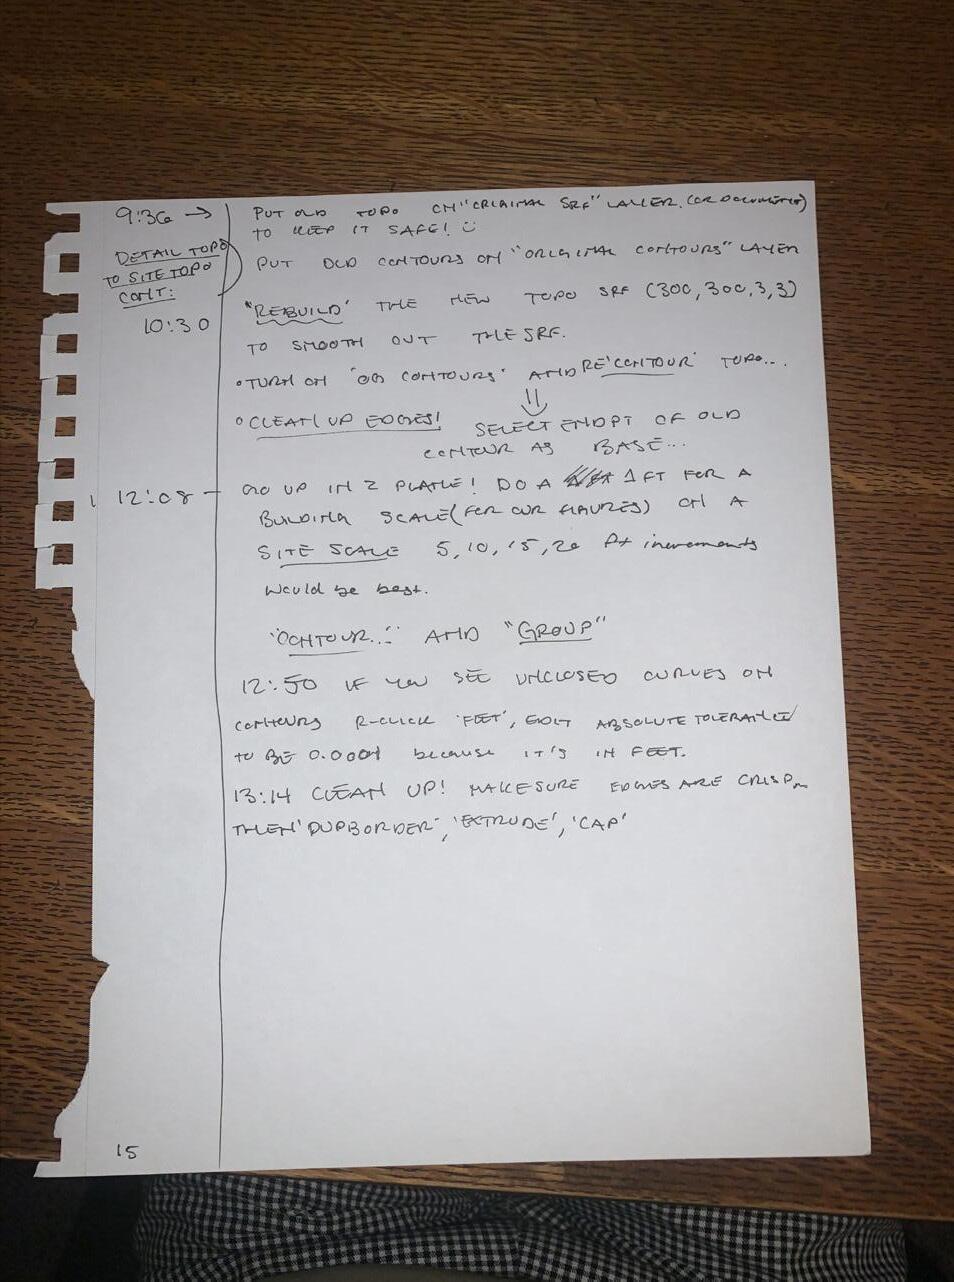 9:36 → PUT OLD TOPO ON "ORIGINAL SRF" LAYER. (OR DOCUMENTED)
TO KEEP IT SAFE! ☺
DETAIL TOPO
TO SITE TOPO
CONT:
PUT OLD CONTOURS ON "ORIGINAL CONTOURS" LAYER
10:30
"REBUILD' THE NEW TOPO SRF (300, 300, 3, 3)
TO SMOOTH OUT THE SRF.
• TURN ON 'OG CONTOURS' AND RE'CONTOUR' TOPO...
° CLEAN UP EDGES!
⇓
SELECT ENDPT OF OLD
CONTOUR AS BASE...
12:08 – GO UP IN Z PLANE! DO A 1 FT FOR A
BUILDING SCALE (FOR OUR FIGURES) ON A
SITE SCALE 5, 10, 15, 20 Ft increments
would be best.
'CONTOUR...' AND "GROUP"
12:50 IF YOU SEE UNCLOSED CURVES ON
CONTOURS R-CLICK 'FEET', EDIT ABSOLUTE TOLERANCE
to BE 0.0001 because it's IN FEET.
13:14 CLEAN UP! MAKE SURE EDGES ARE CRISP...
THEN 'DUPBORDER', 'EXTRUDE', 'CAP'
15